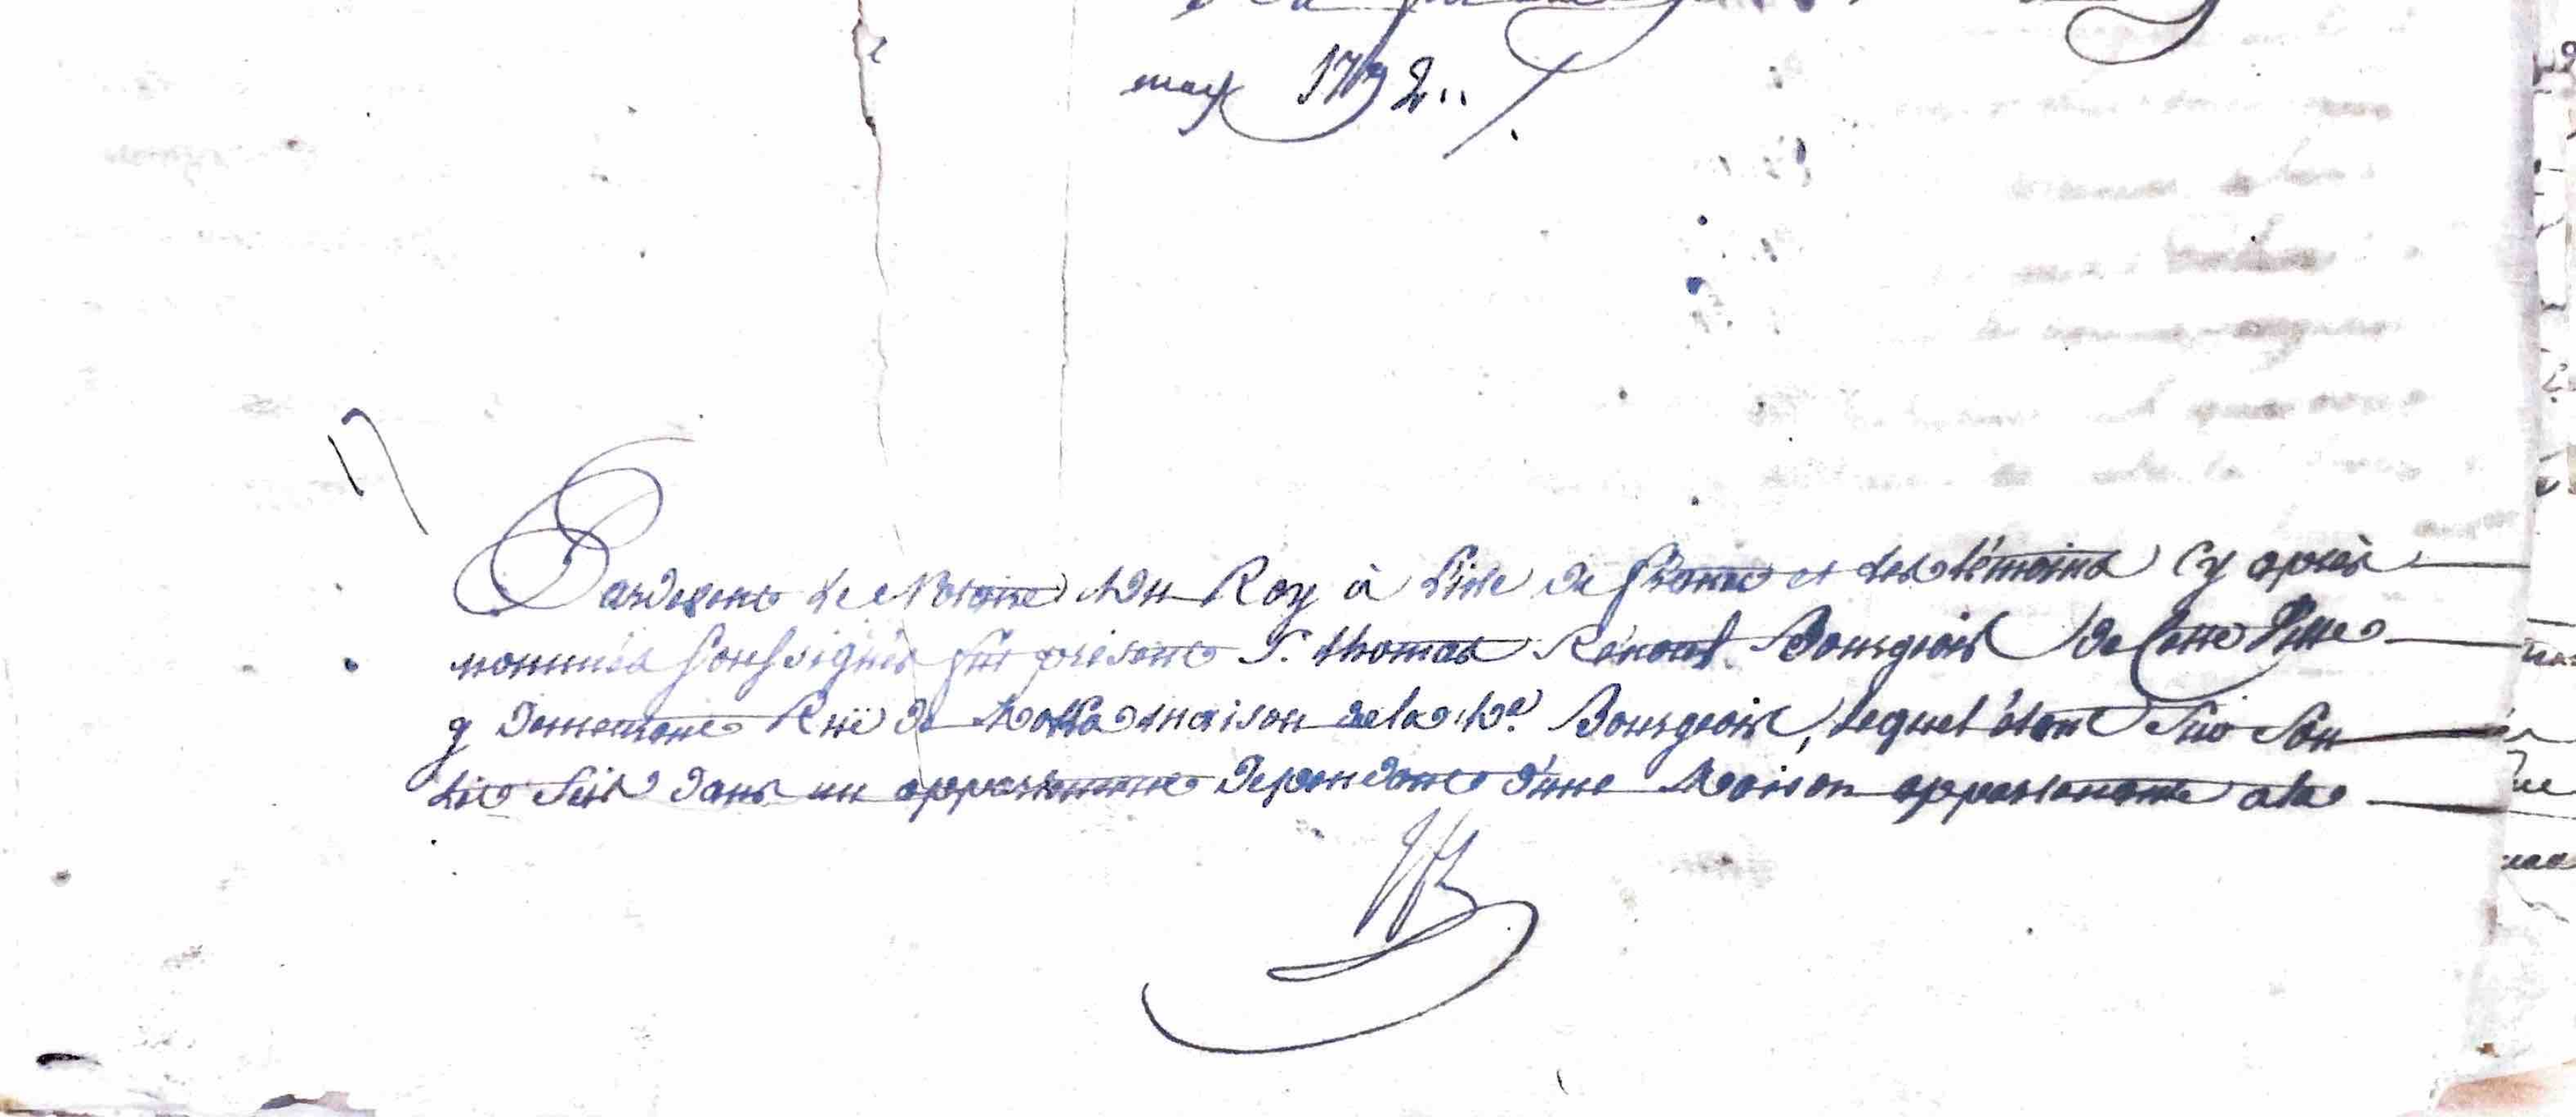 may 1792 ..
Pardevant le Notaire du Roy à L'isle de france et des témoins Cy après
nommés Soussignés fut présent S. thomas Renout Bourgeois de Cette Ville
y demeurant Rüe de maison de la d.e Bourgeois, lequel étant Sur Son
Lit Sis dans un appartement dépendant d'une Maison appartenante à la